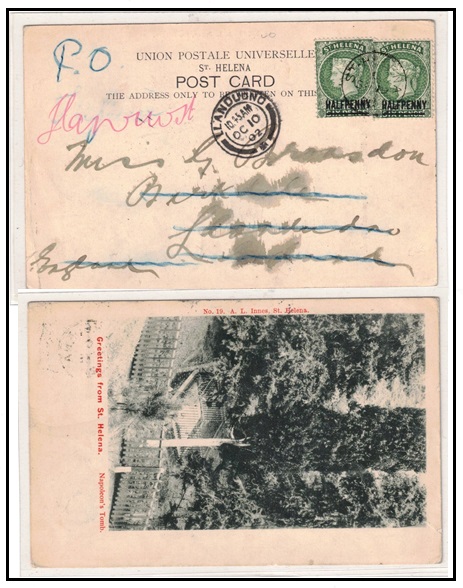 P.O
UNION POSTALE UNIVERSELLE
ST. HELENA
POST CARD
THE ADDRESS ONLY TO BE WRITTEN ON THIS
ST. HELENA
HALFPENNY
ST. HELENA
HALFPENNY
LLANDUDNO
10.45AM
OC 10
02
Miss G
Llandudno
England
No. 19. A. L. Innes, St. Helena.
Greetings from St. Helena.
Napoleon's Tomb.